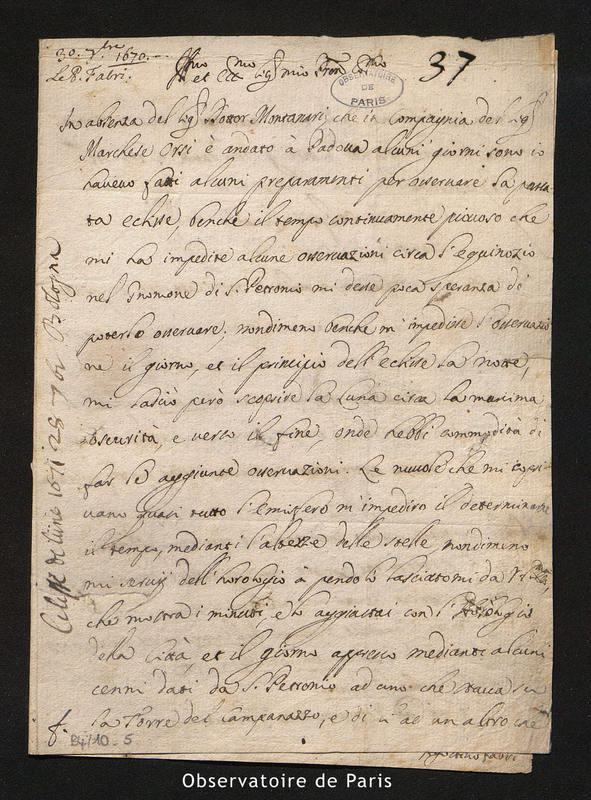 30. 7bre 1670.
Le P. Fabri.
37
OBSERVATOIRE
DE
PARIS
In absenza del Sigr Dottor Montanari, che in Compagnia del Sigr
Marchese Orsi è andato à Padova alcuni giorni sono io
havevo fatti alcuni preparamenti per osservare la passa
ta eclisse, benche il tempo continuamente piovoso che
mi ha impedite alcune osservazioni circa l'equinozio
nel Gnomone di S. Petronio mi desse poca speranza di
poterlo osservare, nondimeno benche m'impedisse l'osservazio
ne il giorno, et il principio dell'eclisse la notte,
mi lasciò però scoprire la Luna circa la massima
obscurità, e verso il fine, onde hebbi commodità di
far le aggiunte osservazioni. Le nuvole che mi copri
vano quasi tutto l'Emisfero m'impediro il determinare
il tempo, mediante l'altezze delle stelle nondimeno
mi servij dell'horologio à pendolo lasciatomi da
che mostra i minuti, e lo aggiustai con l'horologio
della Città, et il giorno appresso mediante alcuni
cenni dati da S. Petronio ad uno che stava su
la Torre del Campanazzo, e di là ad un altro che
Eclisse de lune 1671 28 7br Bologna
f.
B4/10-5
Fabri
Observatoire de Paris